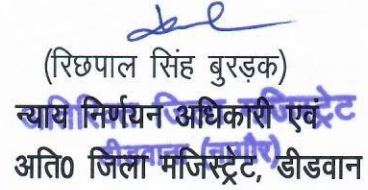 (रिछपाल सिंह बुरड़क)
न्याय निर्णयन अधिकारी एवं
अति0 जिला मजिस्ट्रेट, डीडवान